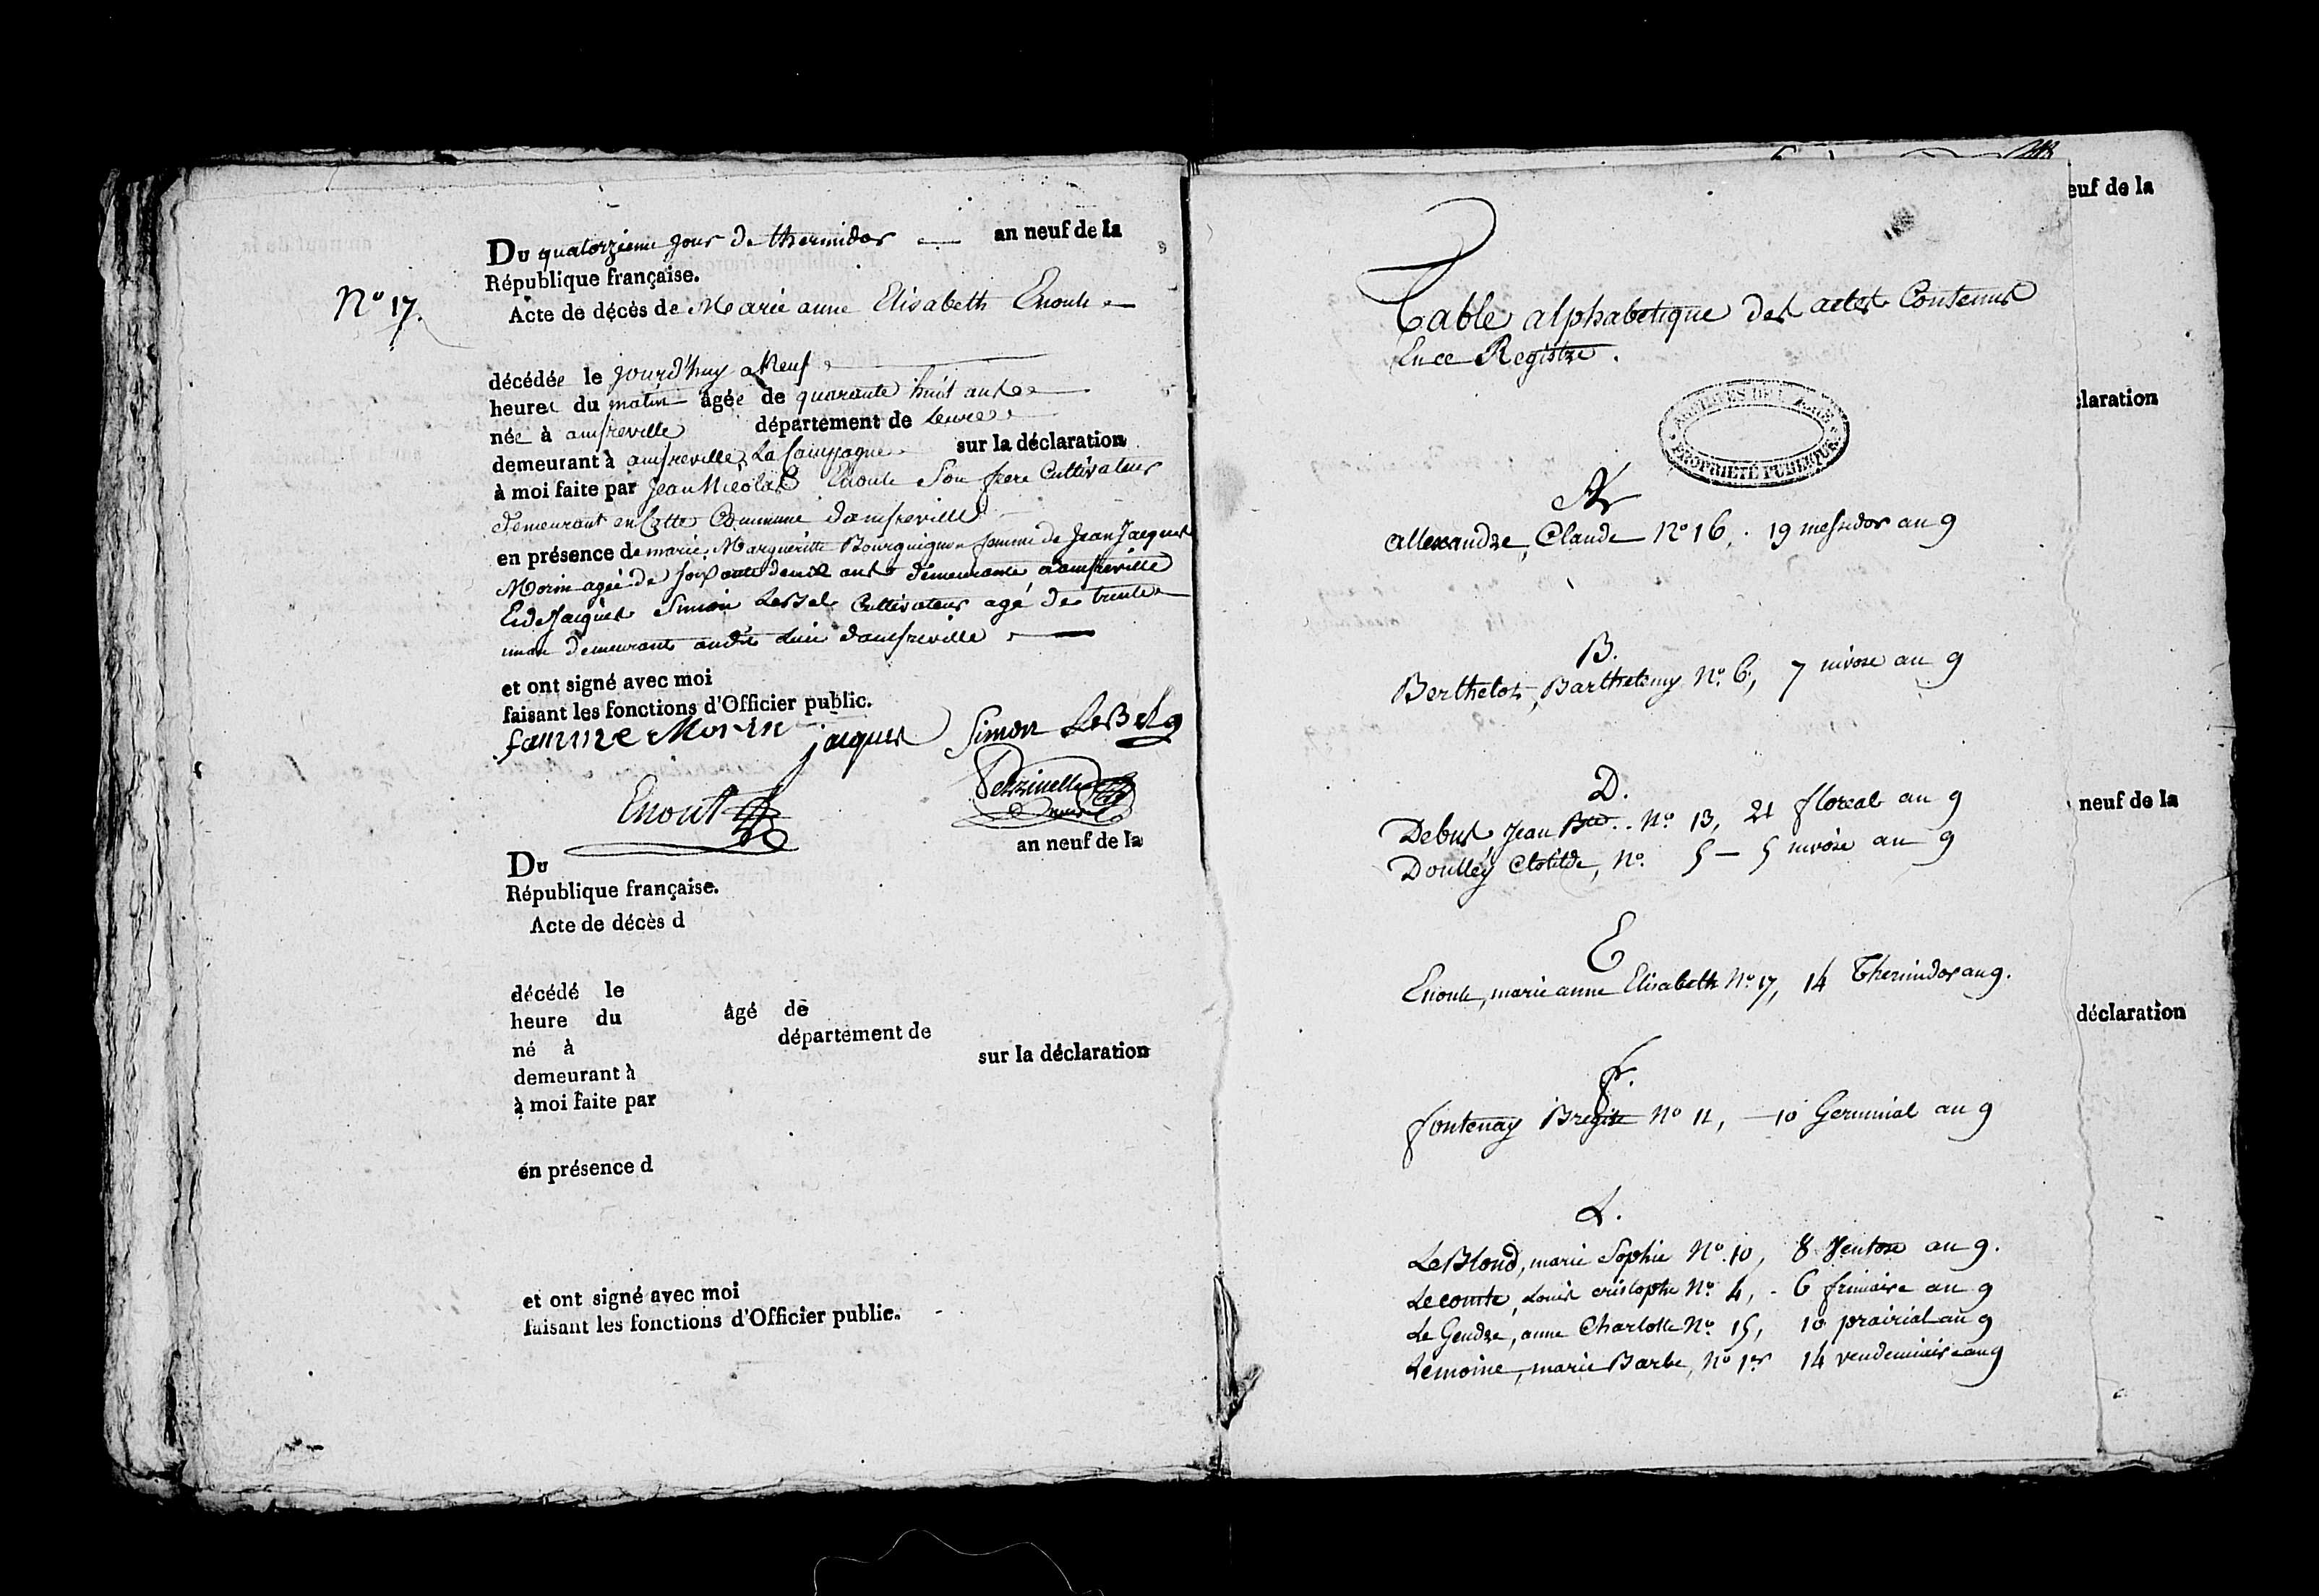 Du quatorzieme jour de thermidor an neuf de la
République française.
N° 17.
Acte de décès de Marie anne Elisabeth Enoult
décédée le jourd'huy a Neuf
heures du matin âgée de quarante huit ans
née à amfreville département de Leure
demeurant à amfreville La Campagne sur la déclaration
à moi faite par Jean Nicolas Enoult Son frere Cultivateur
demeurant en Cette Commune damfreville
en présence de marie Margueritte Bourguignon femme de Jean Jacques
Morin agée de soixante deux ans demeurante a amfreville
Et de Jacques Simon LeBel Cultivateur agé de trente
un an demeurant audit lieu damfreville
et ont signé avec moi
faisant les fonctions d'Officier public.
famme Morin jacques Simon LeBel
Enoult
an neuf de la
Du
République française.
Acte de décès d
décédé le
heure du âgé de
né à département de
demeurant à sur la déclaration
à moi faite par
en présence d
et ont signé avec moi
faisant les fonctions d'Officier public.
Table alphabetique des actes Contenus
En ce Registre.
ARCHIVES DE L'EURE
PROPRIÉTÉ PUBLIQUE
A
allexandre, Claude N° 16. 19 messidor an 9
B.
Berthelot, Barthelemy N° 6, 7 nivose an 9
D.
Debus Jean Bte.. N° 13, 21 floreal an 9
Doulley Clotilde, N° 5 - 5 nivose an 9
E
Enoult, marie anne Elisabeth N° 17, 14 Thermidor an 9.
f.
fontenay Bregite N° 11, - 10 Germinal an 9
L.
LeBlond, marie Sophie N° 10, 8 Ventose an 9.
Lecomte, Louis cristophe N° 4, - 6 frimaire an 9
Le Gendre, anne Charlotte N° 15, 10 prairial an 9
Lemoine, marie Barbe, N° 1er 14 vendemiaire an 9
euf de la
claration
neuf de la
déclaration